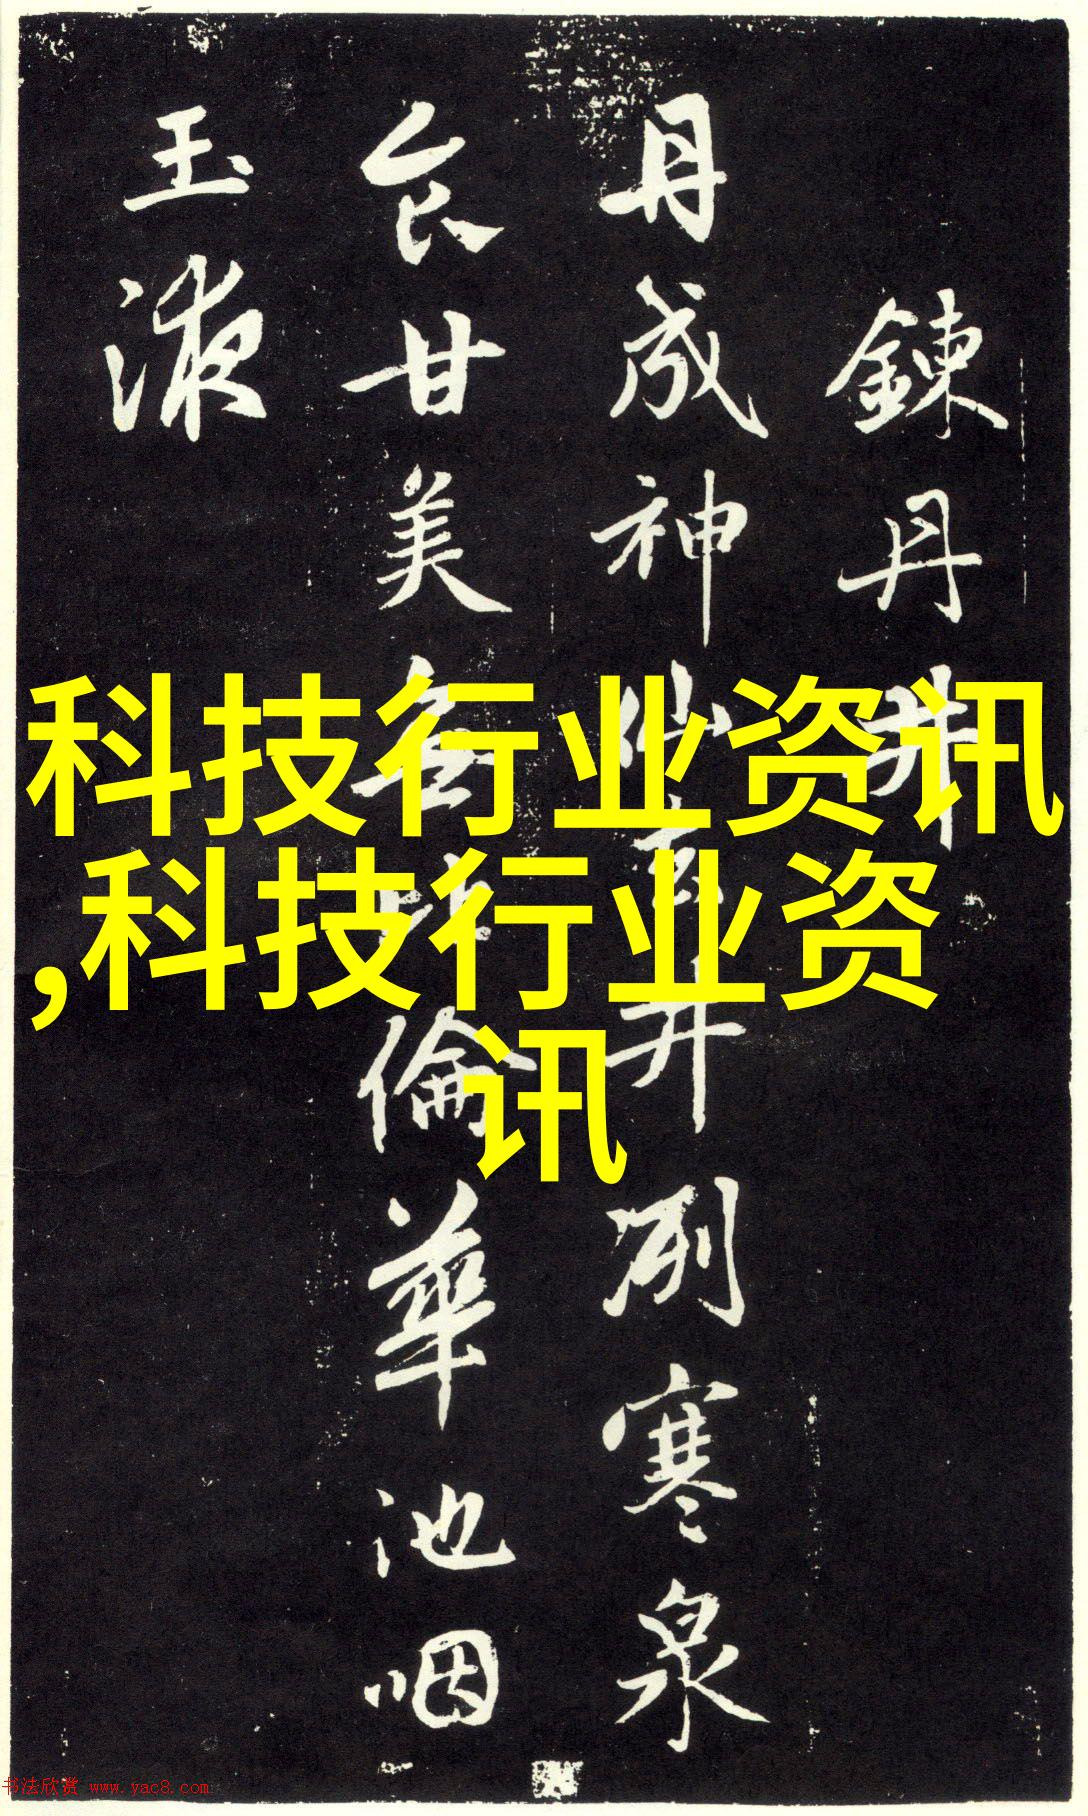 鍊丹井
丹成神仙去井冽寒泉
食甘美無比倫華池咽
玉液
科技行业资讯
,科技行业资
讯
书法欣赏 www.yac8.com